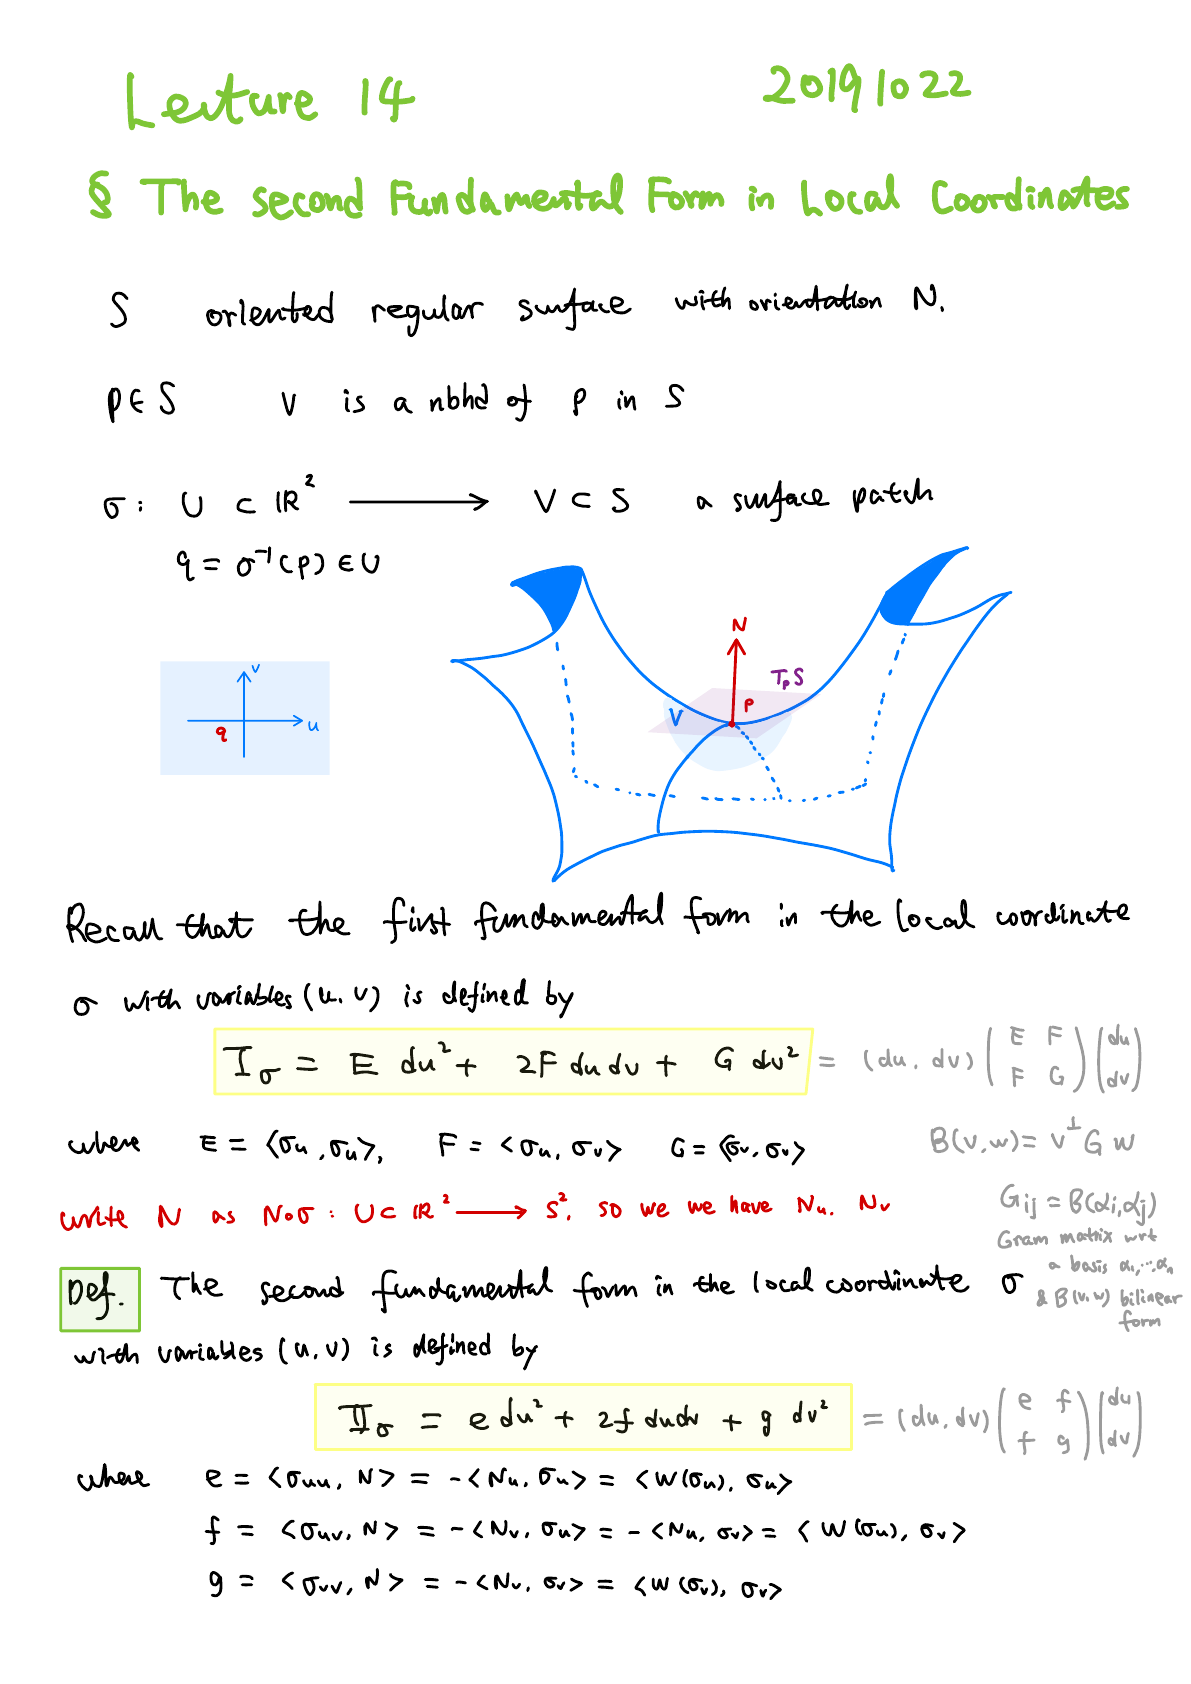 Lecture 14 20191022
§ The second Fundamental Form in Local Coordinates
S oriented regular surface with orientation N.
p∈S V is a nbhd of p in S
σ: U ⊂ ℝ² ⟶ V ⊂ S a surface patch
q = σ⁻¹(p) ∈ U
N
TpS
V
p
v
u
q
Recall that the first fundamental form in the local coordinate
σ with variables (u,v) is defined by
I_σ = E du² + 2F du dv + G dv² = (du, dv) (E F; F G) (du; dv)
where E = ⟨σu, σu⟩, F = ⟨σu, σv⟩ G = ⟨σv, σv⟩ B(v,w) = v^⊥ G w
write N as N∘σ: U ⊂ ℝ² ⟶ S², so we we have Nu. Nv
Gij = B(αi, αj)
Gram matrix wrt
a basis α1,…αn
& B(v,w) bilinear
form
Def. The second fundamental form in the local coordinate σ
with variables (u,v) is defined by
II_σ = e du² + 2f dudv + g dv² = (du, dv) (e f; f g) (du; dv)
where e = ⟨σuu, N⟩ = -⟨Nu, σu⟩ = ⟨W(σu), σu⟩
f = ⟨σuv, N⟩ = -⟨Nv, σu⟩ = -⟨Nu, σv⟩ = ⟨W(σu), σv⟩
g = ⟨σvv, N⟩ = -⟨Nv, σv⟩ = ⟨W(σv), σv⟩